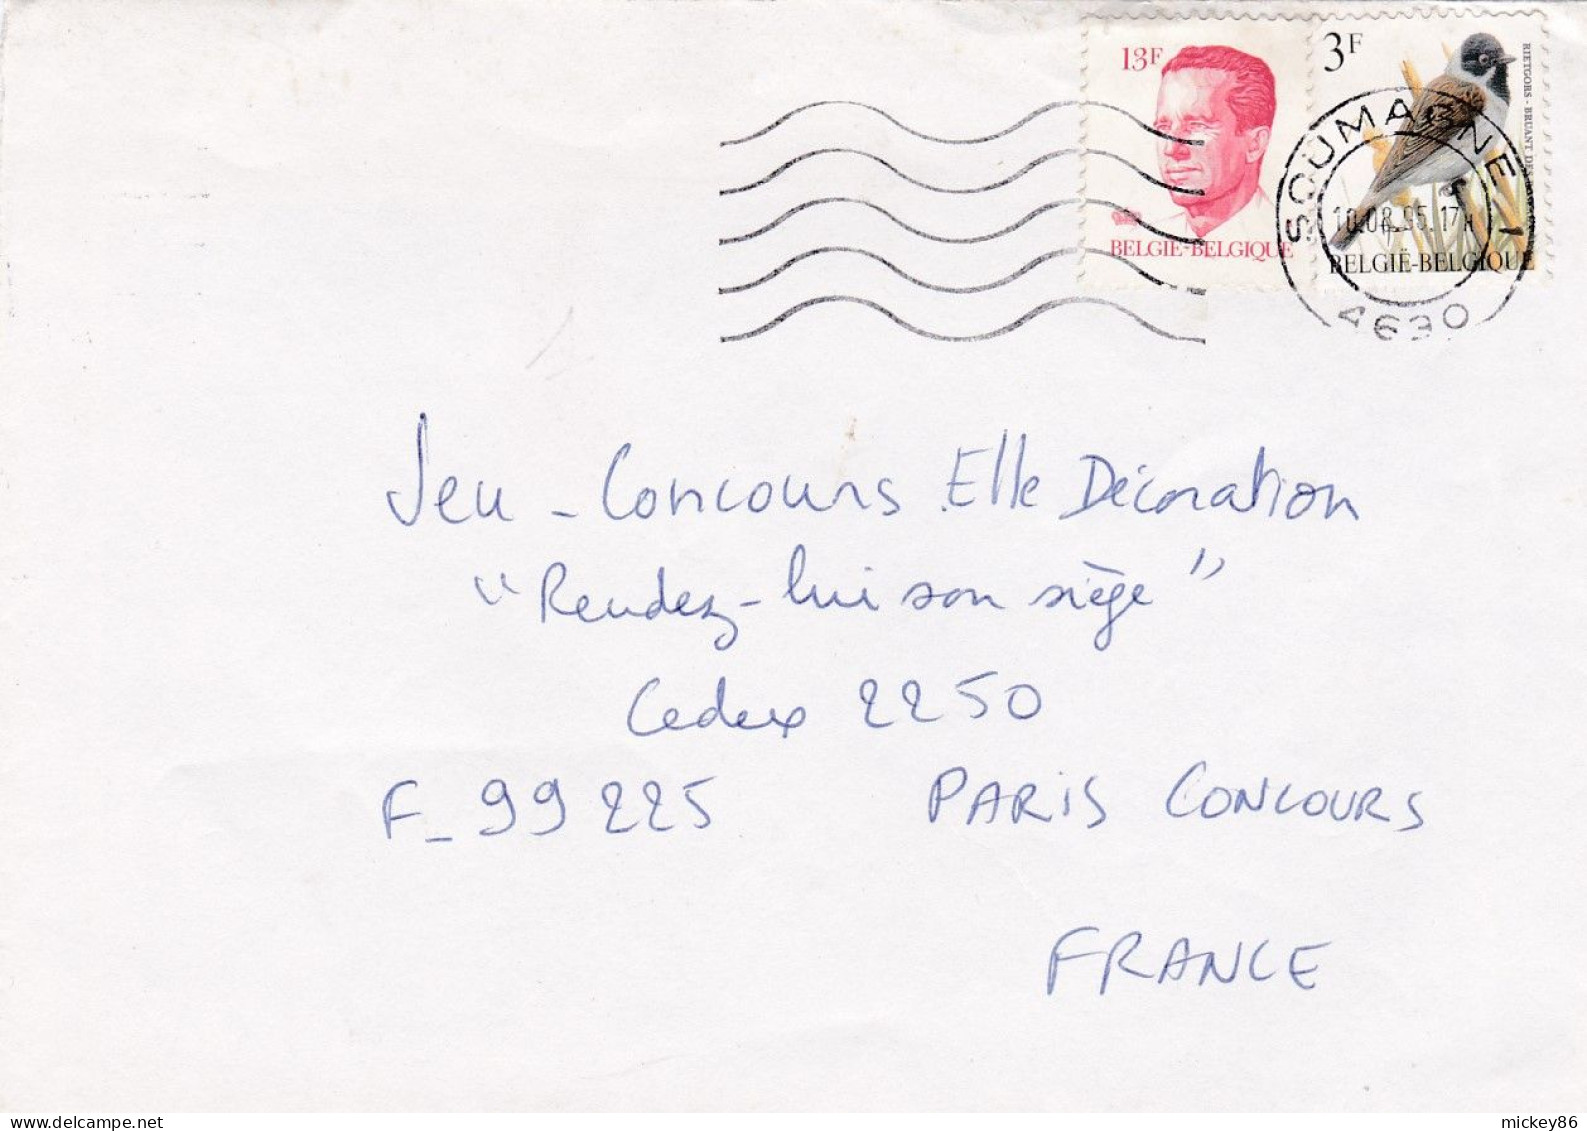 13F
BELGIË-BELGIQUE
3F
RIETGORS - BRUANT DES
BELGIË-BELGIQUE
SOUMAGNE 1
10.08.95.17H
4630
Jeu - Concours Elle Décoration
"Rendez-lui son siège"
Cedex 2250
F_99225 PARIS CONCOURS
FRANCE
mickey86